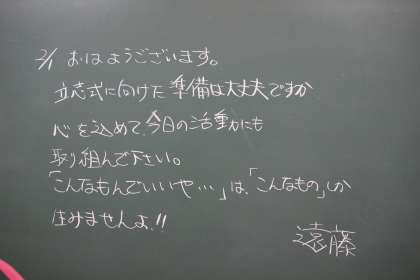 2/1 おはようございます。
立志式に向けた準備は大丈夫ですか
心を込めて、今日の活動にも
取り組んで下さい。
「こんなもんでいいや…」は、「こんなもの」しか
生みませんよ!!
遠藤